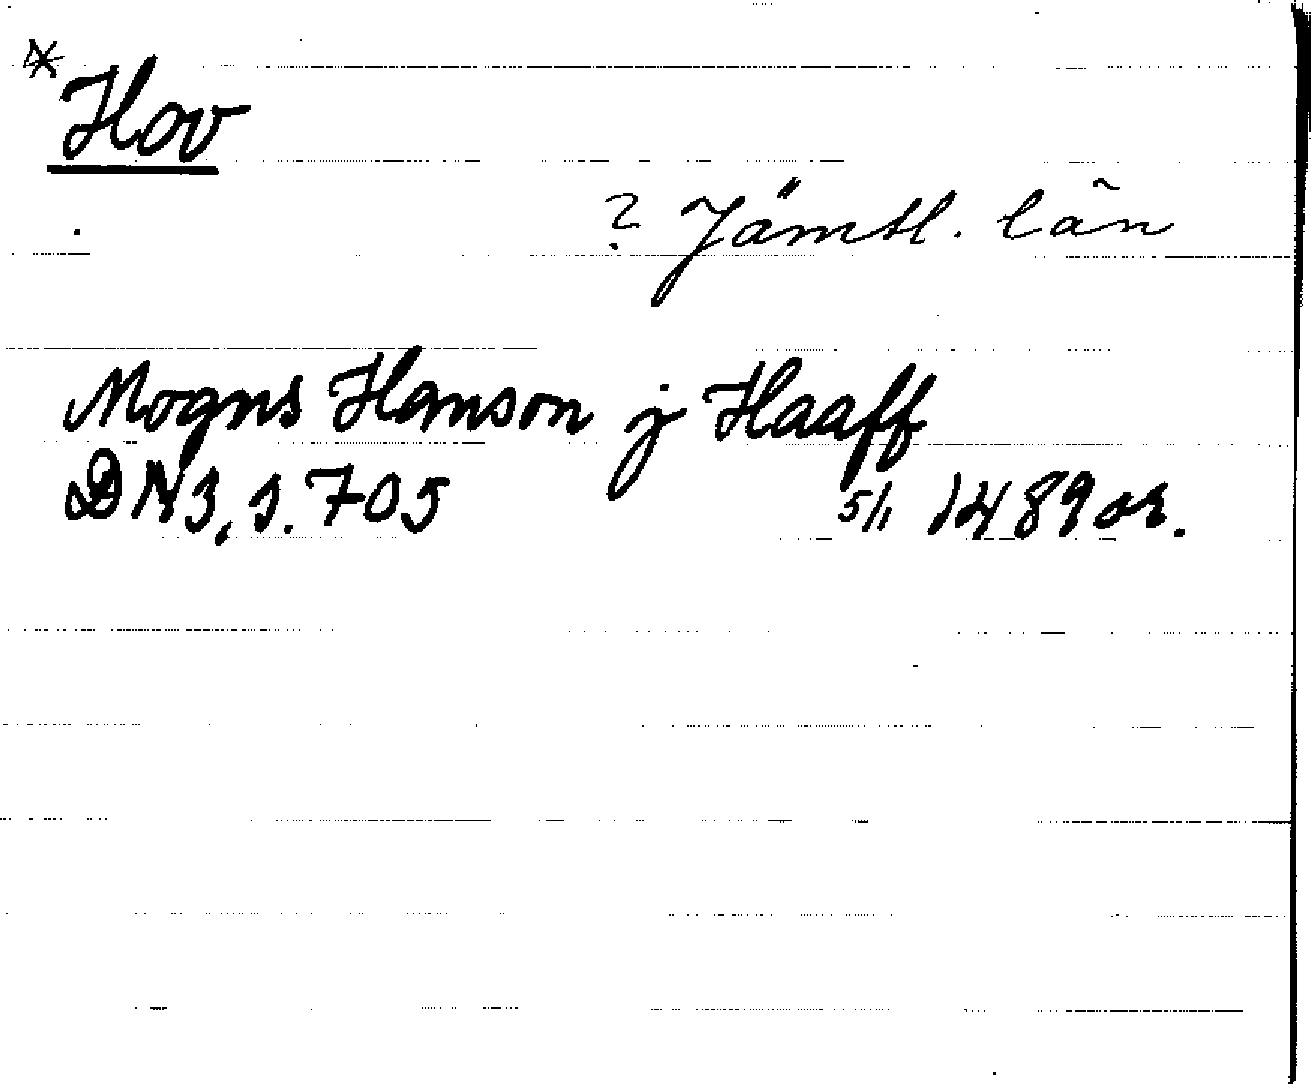 *Hov
? Jämtl. län
Mogns Hanson j Haaff
DN 3, s. 705 5/1 1489 or.